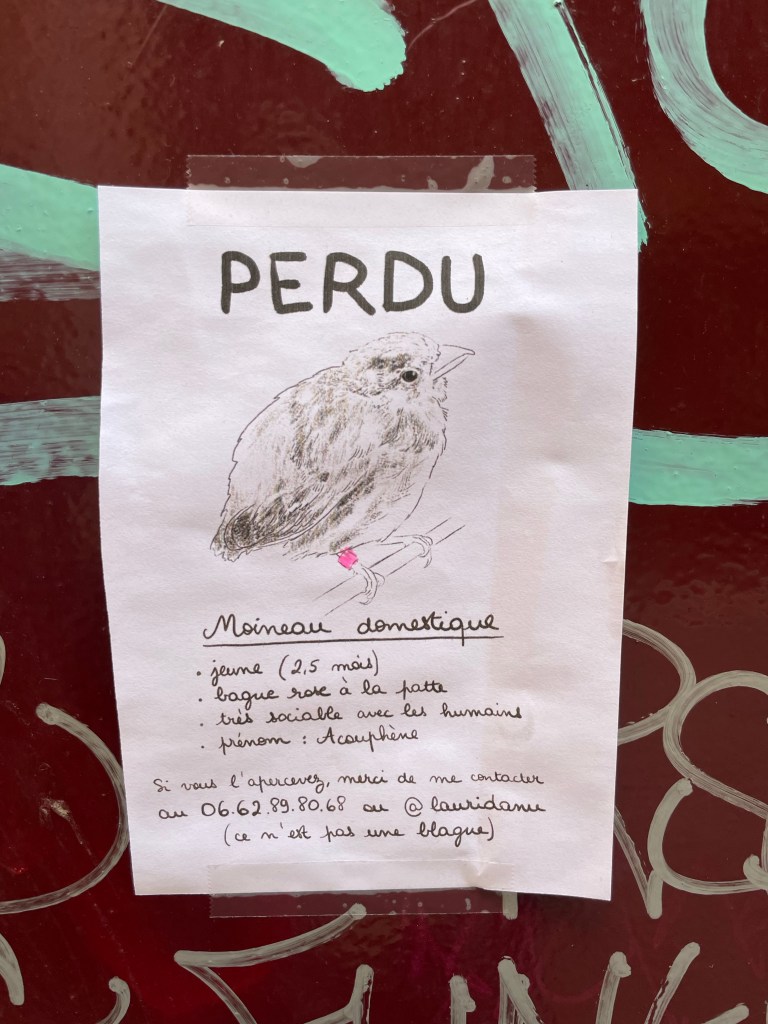 PERDU
Moineau domestique
· jeune (2,5 mois)
· bague rose à la patte
· très sociable avec les humains
· prénom : Acouphène
Si vous l'apercevez, merci de me contacter
au 06.62.89.80.68 ou @lauridanu
(ce n'est pas une blague)